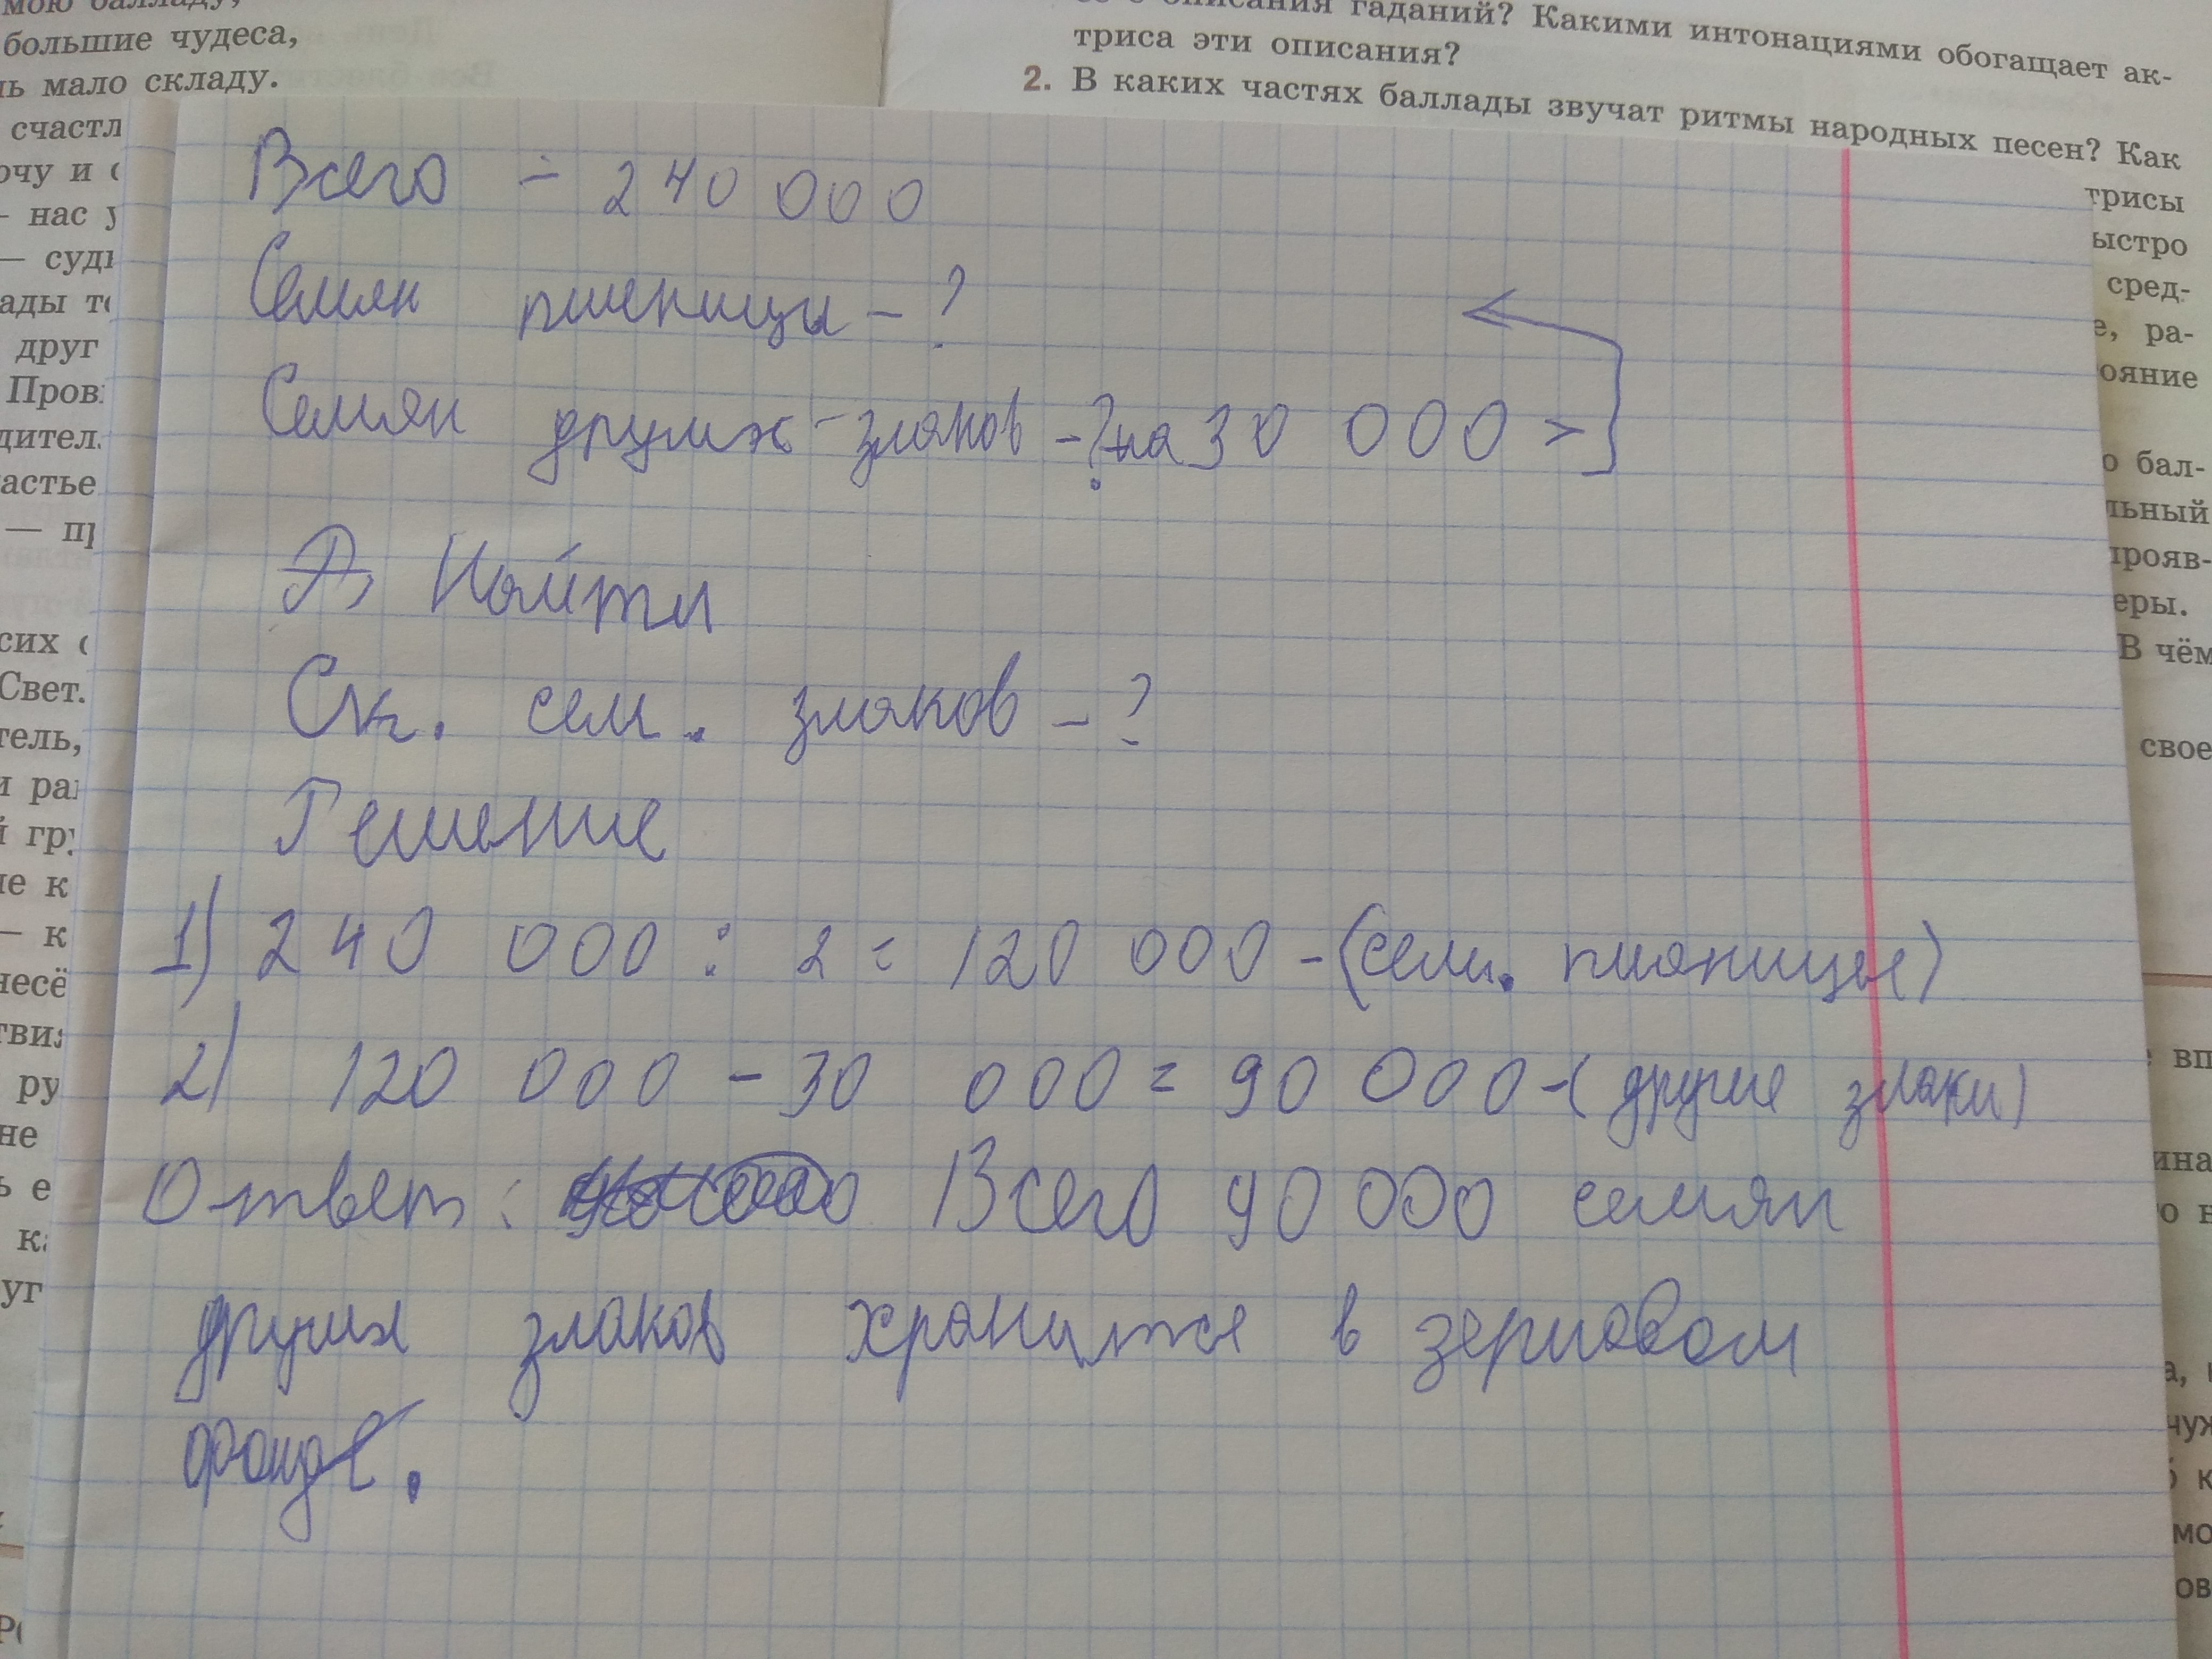 мою балладу,
большие чудеса,
нь мало складу.
счастл
очу и с
— нас у
— судь
ады то
друг
Пров
дител
частье
— пр
сих с
Свет.
тель,
и рас
й гру
ие к
— к
несё
твия
ру
не
ь е
ка
уг
описания гаданий? Какими интонациями обогащает ак-
триса эти описания?
2. В каких частях баллады звучат ритмы народных песен? Как
трисы
ыстро
сред-
е, ра-
ояние
о бал-
льный
прояв-
еры.
В чём
свое
вп
ина
то н
а,
чуж
б к
мо
ов
Всего - 240 000
Семян пшеницы - ?
Семян других злаков - ? на 30 000 >
Найти
Ск. сем. злаков - ?
Решение
1) 240 000 : 2 = 120 000 - (сем. пшяницы)
2) 120 000 - 30 000 = 90 000 - (другие злаки)
Ответ: Всего 90 000 семян
других злаков хранится в зерновом
фонде.